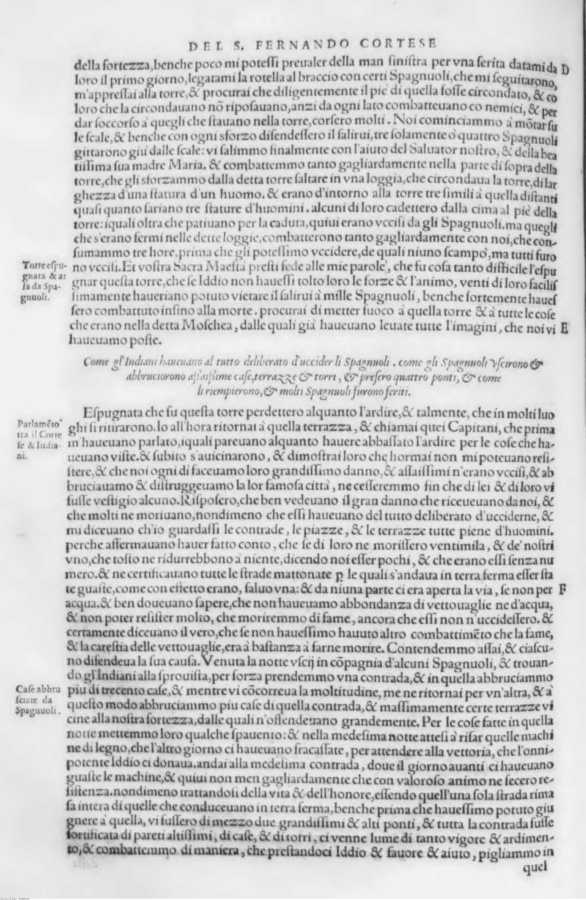 DEL S. FERNANDO CORTESE
della fortezza, benche poco mi potessi preualer della man sinistra per vna ferita datami da D
loro il primo giorno, legatami la rotella al braccio con certi Spagnuoli, che mi seguitarono,
m'appressai alla torre, & procurai che diligentemente il piè di quella fosse circondato, & co
loro che la circondauano nō riposauano, anzi da ogni lato combatteuano co nemici, & per
dar soccorso a quegli che stauano nella torre, corsero molti. Noi cominciammo à mōtar su
le scale, & benche con ogni sforzo difendessero il salirui, tre solamente ò quattro Spagnuoli
gittarono giu dalle scale: vi salimmo finalmente con l'aiuto del Saluator nostro, & della bea
tissima sua madre Maria. & combattemmo tanto gagliardamente nella parte di sopra della
torre, che gli sforzammo dalla detta torre saltare in vna loggia, che circondaua la torre, di lar
ghezza d'una statura d'un huomo. & erano d'intorno alla torre tre simili à quella distanti
quasi quanto sariano tre stature d'huomini. alcuni di loro cadettero dalla cima al piè della
torre: iquali oltra che patiuano per la caduta, quiui erano vccisi da gli Spagnuoli. ma quegli
che s'erano fermi nelle dette loggie, combatterono tanto gagliardamente con noi, che con-
sumammo tre hore, prima che gli potessimo vccidere, de quali niuno scampo, ma tutti furo
Torre espu-
gnata & ar
sa da Spa-
gnuoli.
no vccisi. Et vostra Sacra Maestà presti fede alle mie parole, che fu cosa tanto difficile l'espu
gnar questa torre, che se Iddio non hauessi tolto loro le forze & l'animo, venti di loro facilis
simamente haueriano potuto vietare il salirui à mille Spagnuoli, benche fortemente hauef
sero combattuto infino alla morte. procurai di metter fuoco à quella torre & à tutte le cose
che erano nella detta Moschea, dalle quali già haueuano leuate tutte l'imagini, che noi vi E
haueuamo poste.
Come gl'Indiani haueuano al tutto deliberato d'uccider li Spagnuoli. come gli Spagnuoli vscirono &
abbruciorono assaissime case, terrazze & torri, & presero quattro ponti, & come
li riempierono, & molti Spagnuoli furono feriti.
Parlamēto
tra il Corte
se & India-
ni.
Espugnata che fu questa torre perdettero alquanto l'ardire, & talmente, che in molti luo
ghi si ritirarono. Io all'hora ritornai à quella terrazza, & chiamai quei Capitani, che prima
m haueuano parlato, iquali pareuano alquanto hauere abbassato l'ardire per le cose che ha-
ueuano viste. & subito s'auicinarono, & dimostrai loro che hormai non mi poteuano resi-
stere, & che noi ogni dì faceuamo loro grandissimo danno, & assaissimi n'erano vccisi, & ab
bruciauamo & distruggeuamo la lor famosa città, ne cesseremmo fin che di lei & di loro vi
fusse vestigio alcuno. Risposero, che ben vedeuano il gran danno che riceueuano da noi, &
che molti ne moriuano, nondimeno che essi haueuano del tutto deliberato d'ucciderne, &
mi diceuano ch'io guardassi le contrade, le piazze, & le terrazze tutte piene d'huomini.
perche affermauano hauer fatto conto, che se di loro ne morissero ventimila, & de' nostri
vno, che tosto ne ridurrebbono à niente, dicendo noi esser pochi, & che erano essi senza nu
mero. & ne certificauano tutte le strade mattonate p le quali s'andaua in terra ferma esser sta
te guaste, come con effetto erano, saluo vna: & da niuna parte ci era aperta la via, se non per F
acqua. & ben doueuano sapere, che non haueuamo abbondanza di vettouaglie ne d'acqua,
& non poter resister molto, che moriremmo di fame, ancora che essi non n'uccidessero. &
certamente diceuano il vero, che se non hauessimo hauuto altro combattimēto che la fame,
& la carestia delle vettouaglie, era à bastanza à farne morire. Contendemmo assai, & ciascu-
no difendeua la sua causa. Venuta la notte vscij in cōpagnia d'alcuni Spagnuoli, & trouan-
do gl'Indiani alla sprouista, per forza prendemmo vna contrada, & in quella abbruciammo
Case abbru
sciate da
Spagnuoli.
piu di trecento case, & mentre vi cōcorreua la moltitudine, me ne ritornai per vn'altra, & à
questo modo abbruciammo piu case di quella contrada, & massimamente certe terrazze vi
cine alla nostra fortezza, dalle quali n'offendeuano grandemente. Per le cose fatte in quella
notte mettemmo loro qualche spauento: & nella medesima notte attesi à rifar quelle machi
ne di legno, che l'altro giorno ci haueuano fracassate, per attendere alla vettoria, che l'onni-
potente Iddio ci donaua. andai alla medesima contrada, doue il giorno auanti ci haueuano
guaste le machine, & quiui non men gagliardamente che con valoroso animo ne fecero re-
sistenza. nondimeno trattandosi della vita & dell'honore, essendo quell'una sola strada rima
sa intera di quelle che conduceuano in terra ferma, benche prima che hauessimo potuto giu
gnere à quella, vi fussero di mezzo due grandissimi & alti ponti, & tutta la contrada fusse
fortificata di pareti altissimi, di case, & di torri, ci venne lume di tanto vigore & ardimen-
to, & combattemmo di maniera, che prestandoci Iddio & fauore & aiuto, pigliammo in
quel